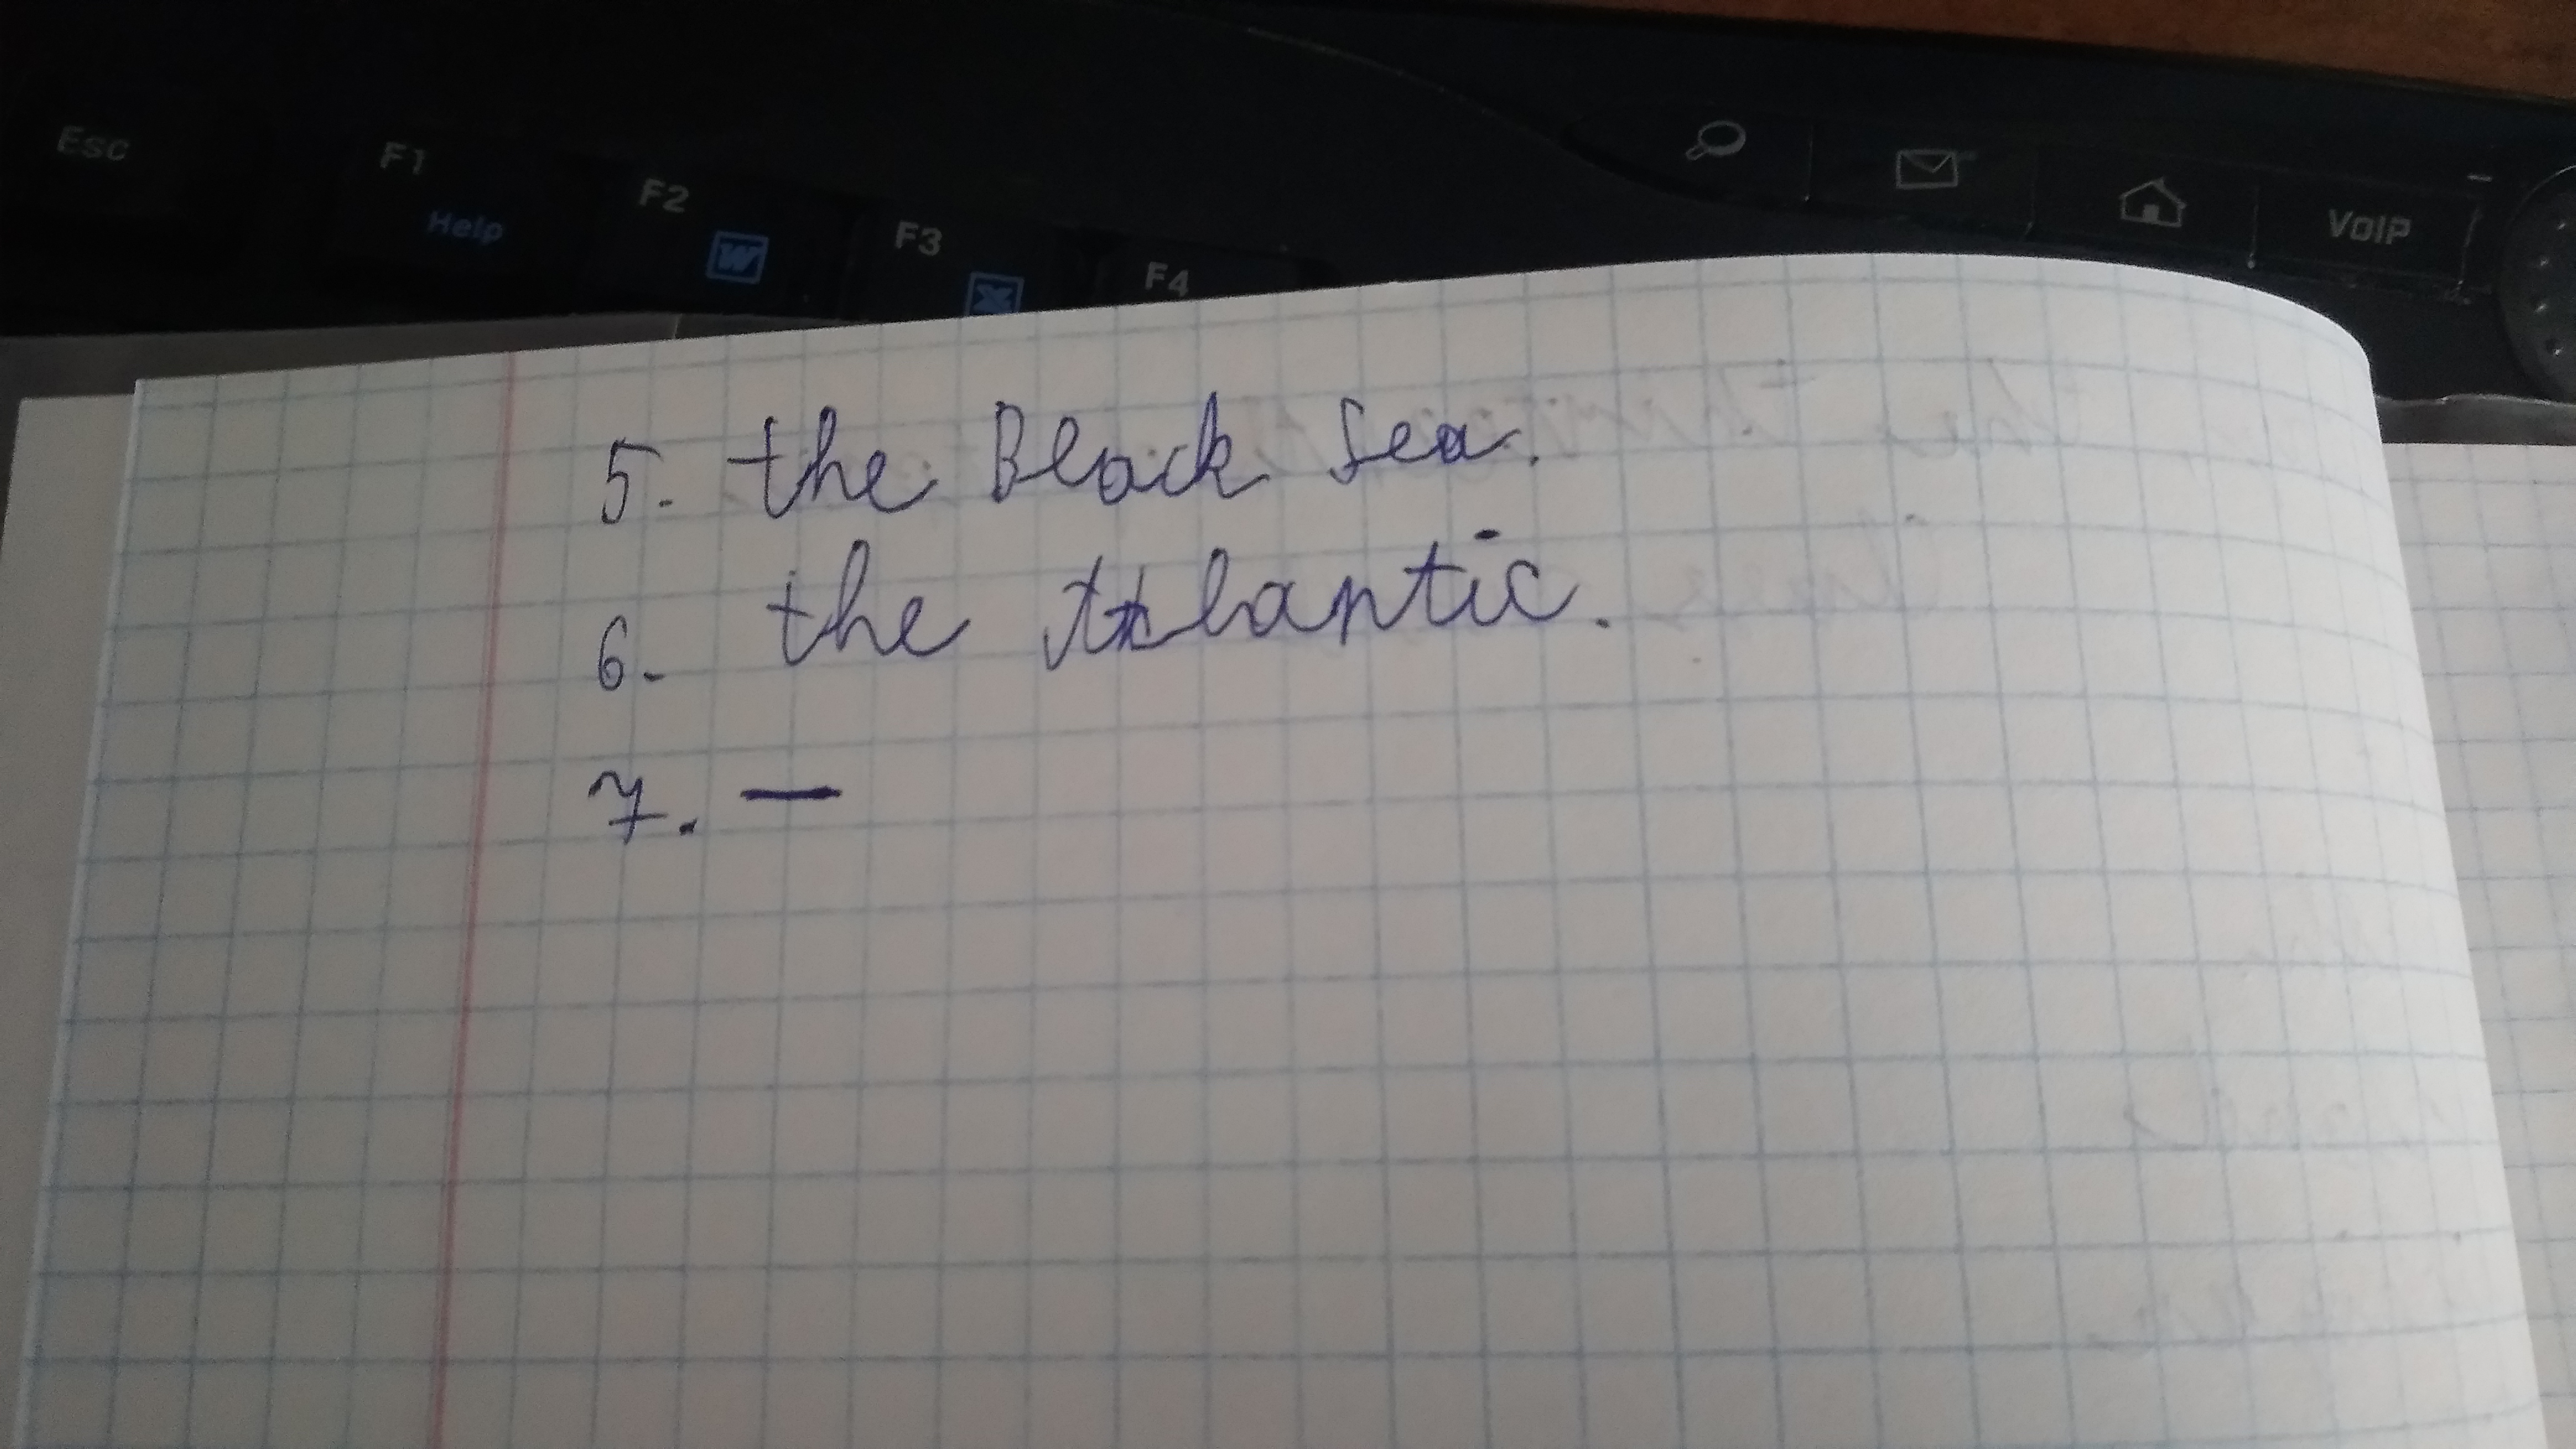 Esc
F1
Help
F2
W
F3
X
F4
VoIP
5. the Black Sea.
6. the Atlantic.
7. —